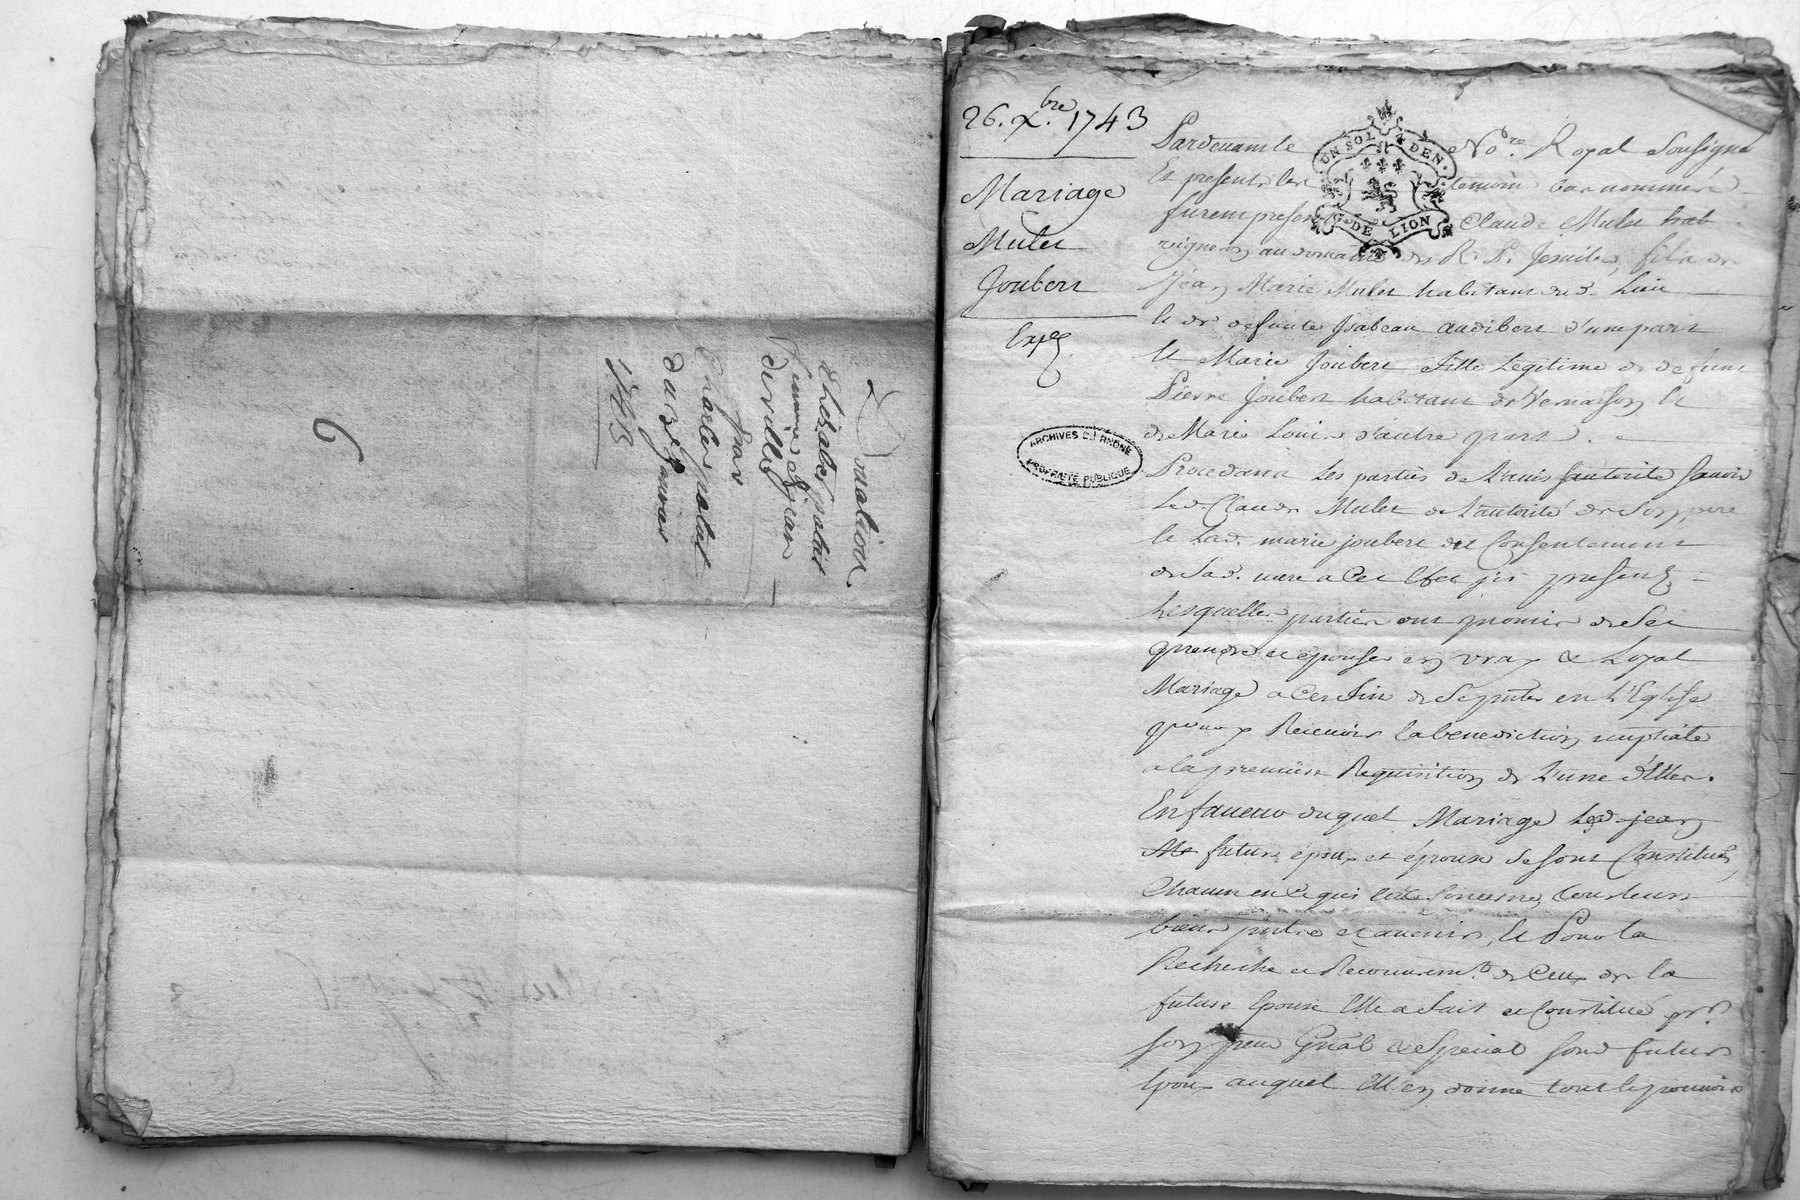 Donation
Elizabet palut
femme de jean
derville
par
Charles palut
du 25e janvier
1743
6
26. Xbre 1743
Mariage
Mulet
Joubert
Expé
ARCHIVES DU RHÔNE
PROPRIÉTÉ PUBLIQUE
UN SOL 4 DEN.
G. DE LION
Pardevant le Nore. Royal Soussigné
Et presents les temoins bas nommés
furent presents Claude Mulet hab
vigneron au domaine des R. P. Jesuites, fils de
Jéan Marie Mulet habitant dud. Lieu
et de defunte Isabeau audibert d'une part
Et Marie Joubert fille Legitime de defunt
Pierre Joubert habitant de Vernaison et
de Marie Louis d'autre part.
Procedant Les parties de L'avis & autorité Savoir
Led. Claude Mulet de L'autorité de Son pere
et Lad. marie joubert du Consentement
de Sad. mere a Cet Effet ici present
Lesquelles parties ont promis de Se
prendre et épouser en vray & Loyal
Mariage a Ces fins de Se pnter en L'Eglise
pour y Recevoir la benediction nuptiale
a la premiere Requisition de L'une d'Elles.
En faveur duquel Mariage Led. jean
futurs époux et épouse Se sont Constitués
Chacun en Ce qui Les Concerne, tous leurs
biens pnts et avenirs, Et Pour la
Recherche et Recouvremt. de Ceux de la
future Epouse Elle a fait et Constitué pr
Son pcur Gnal & Special Sond. futur
Epoux auquel Elle en donne tout le pouvoir